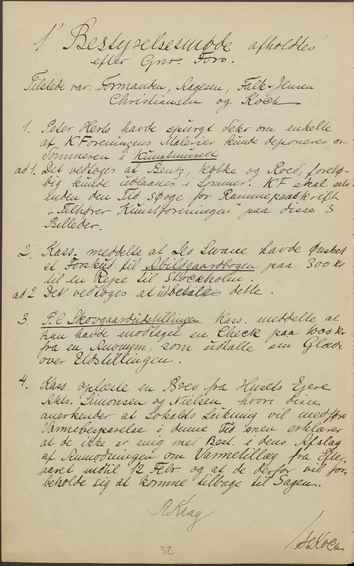 1' Bestyrelsesmøde afholdtes
efter Grv. Forv.
Tilstede var: Formanden, Aagesen, Falk-Jensen
Christiansen og Koch
1. Peter Hertz havde spurgt Sekr. om enkelte
af K Foreningens Malerier kunde deponeres en
Sommeren i Kunstmuseet
ad 1. Det vedtoges at Bentz, Købke og Roed, foreløb-
big kunde udlaanes i Sommer. K F skal
inden den Tid sørge for Rammepaaskrift
: Tilhører Kunstforeningen paa disse 3
Billeder.
2. Kass. meddelte at Leo Swane havde ønsket
et Forskud til Abildgaardbogen paa 300 Kr
til en Rejse til Stockholm
ad 2. Det vedtoges at udbetale dette.
3. P.C. Skovgaardudstillingen Kass. meddelte at
han havde modtaget en Check paa 1000 Kr
fra en Anonym, som udtalte sin Glæde
over Udstillingen.
4. Kass oplæste en Brev fra Husets Ejere
Arkt. Simonsen og Nielsen hvori disse
anerkender at Lokalets Lukning vil medføre
Varmebesparelse i denne Tid men erklærer
at de ikke er enig med Best. i dens Afslag
af Anmodningen om Varmetillæg fra Efter-
aaret indtil 12 Febr og at de derfor vil for-
beholde sig at komme tilbage til Sagen.
O Krag
H Koch
32